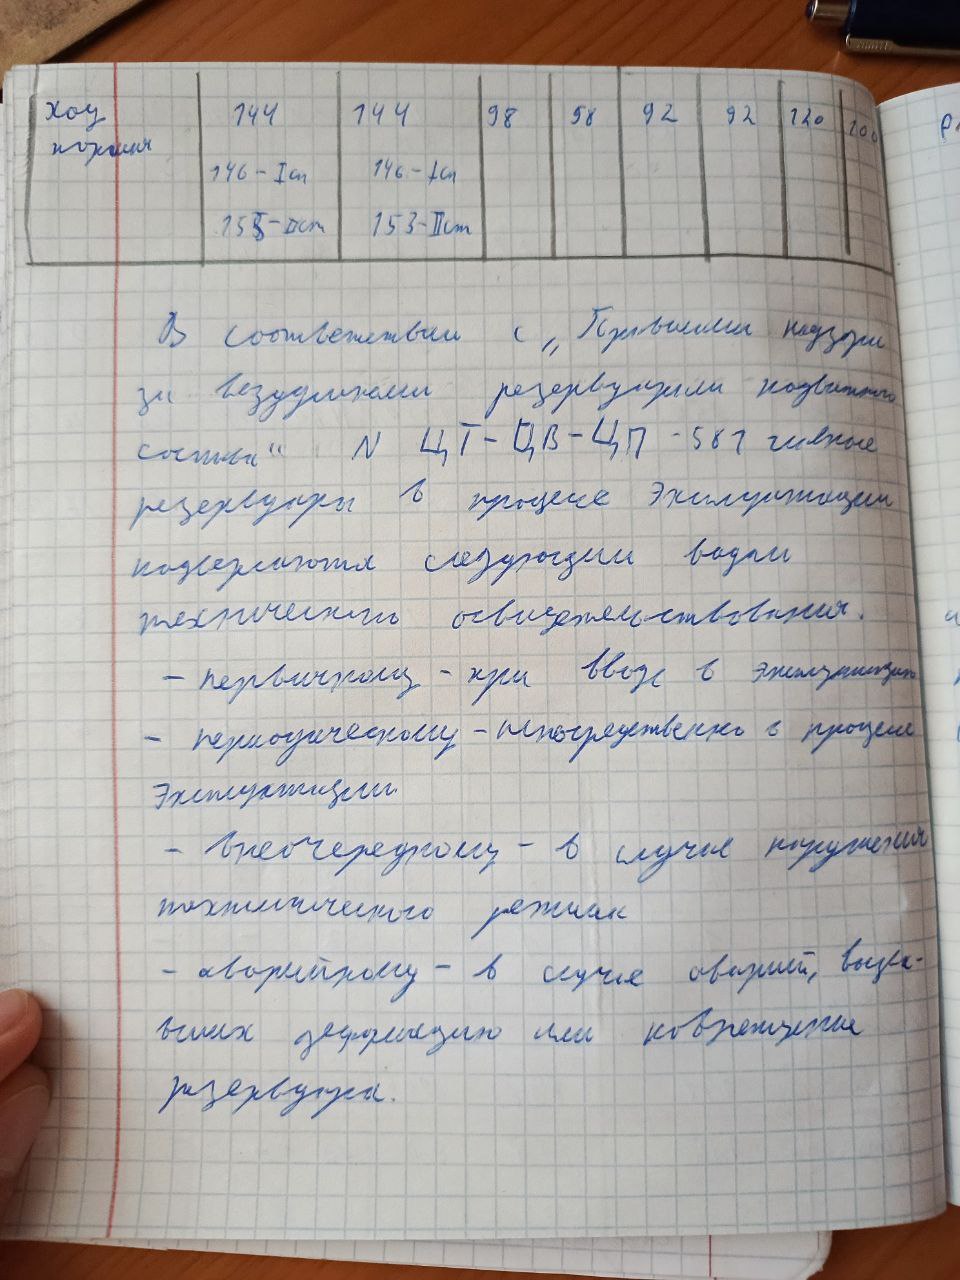 Ход 144 144 98 98 92 92 120 100
поршня
146-Iст 146-Iст
153-IIст 153-IIст
В соответствии с „Правилами надзора
за воздушными резервуарами подвижного
состава“ N ЦТ-ЦВ-ЦП-581 главные
резервуары в процессе эксплуатации
подвергаются следующим видам
технического освидетельствования.
- первичному - при вводе в эксплуатацию
- периодическому - непосредственно в процессе
эксплуатации
- внеочередному - в случае нарушения
технического режима
- аварийному - в случае аварий, вызва-
вших деформацию или повреждение
резервуара.